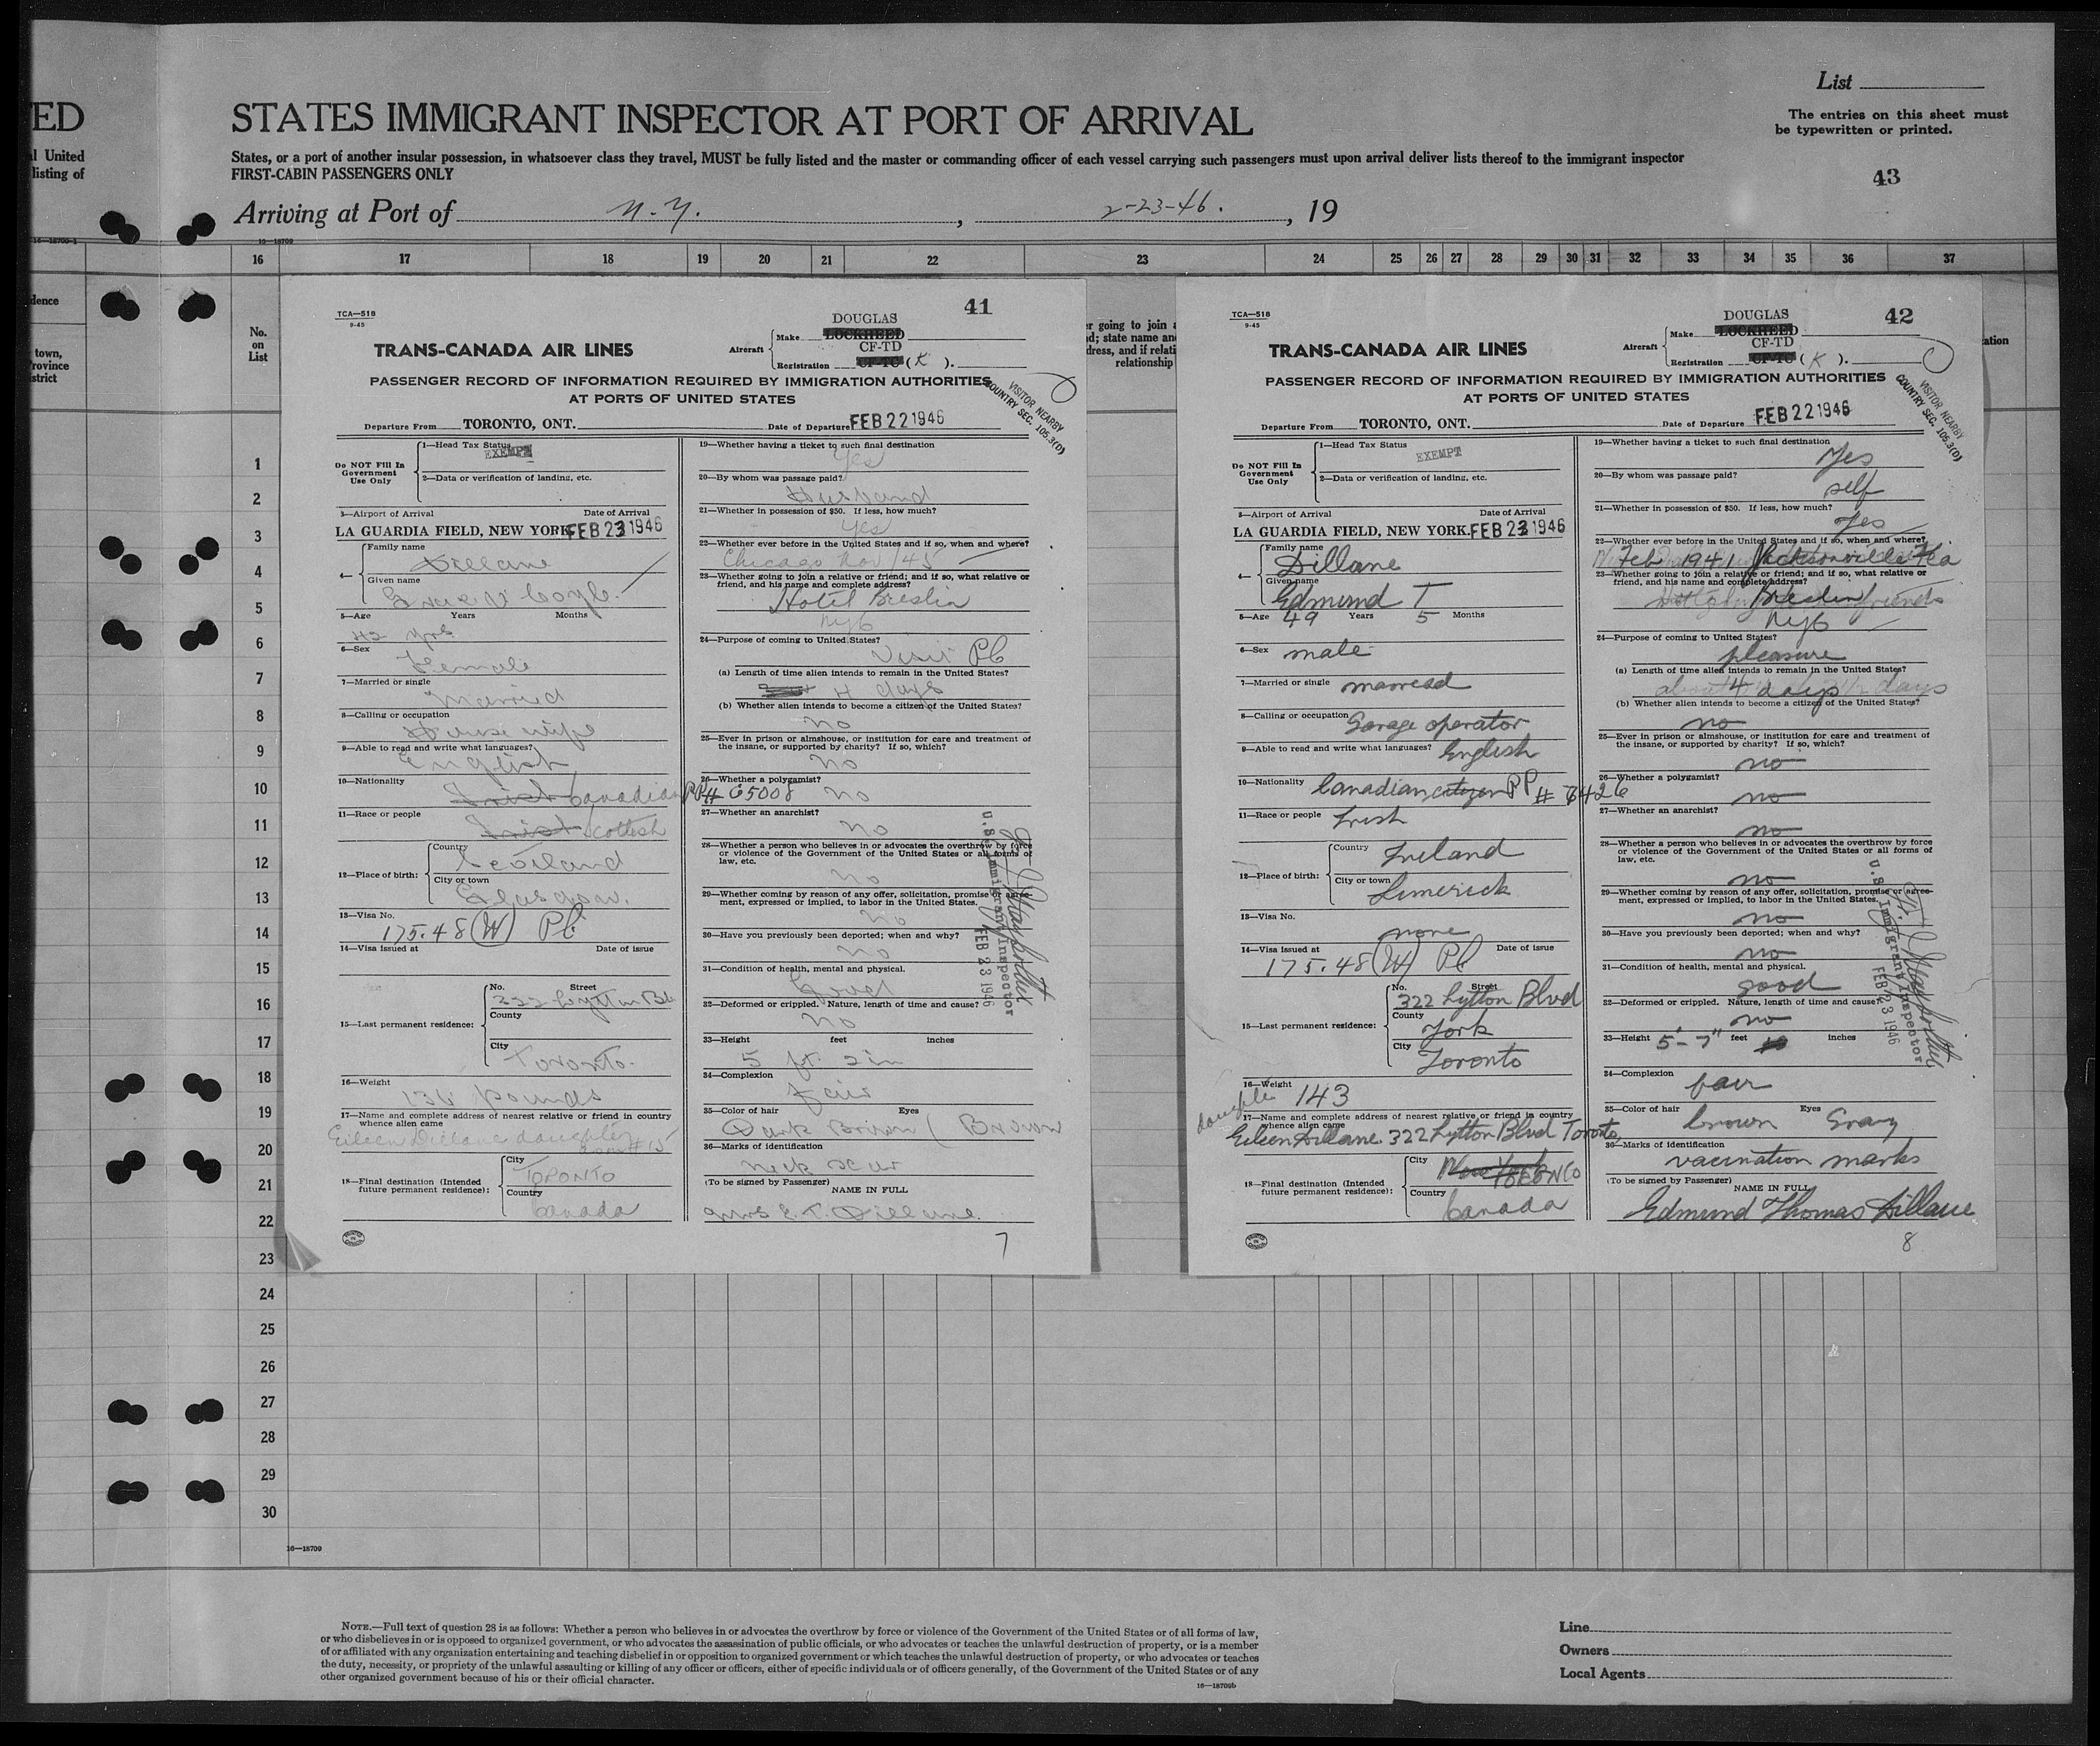 ED
al United
listing of
List
STATES IMMIGRANT INSPECTOR AT PORT OF ARRIVAL
The entries on this sheet must
be typewritten or printed.
States, or a port of another insular possession, in whatsoever class they travel, MUST be fully listed and the master or commanding officer of each vessel carrying such passengers must upon arrival deliver lists thereof to the immigrant inspector
FIRST-CABIN PASSENGERS ONLY
43
Arriving at Port of N.Y., 2-23-46., 19
16—18709
16 17 18 19 20 21 22 23 24 25 26 27 28 29 30 31 32 33 34 35 36 37
dence
town,
rovince
strict
No.
on
List
going to join a
d; state name an
dress, and if relati
relationship
ation
1
2
3
4
5
6
7
8
9
10
11
12
13
14
15
16
17
18
19
20
21
22
23
24
25
26
27
28
29
30
16—18709
41
TCA—518
9-45
TRANS-CANADA AIR LINES
Aircraft
Make DOUGLAS LOCKHEED
CF-TD
Registration CF-TC (K).
PASSENGER RECORD OF INFORMATION REQUIRED BY IMMIGRATION AUTHORITIES
AT PORTS OF UNITED STATES
VISITOR NEARBY
COUNTRY SEC. 105.3(D)
Departure From TORONTO, ONT. Date of Departure FEB 22 1946
Do NOT Fill In
Government
Use Only
1—Head Tax Status EXEMPT
2—Data or verification of landing, etc.
3—Airport of Arrival Date of Arrival
LA GUARDIA FIELD, NEW YORK. FEB 23 1946
4—
Family name Dillane
Given name Coyle
5—Age Years Months
42 yrs
6—Sex Female
7—Married or single Married
8—Calling or occupation House wife
9—Able to read and write what languages?
English
10—Nationality Irish Canadian PP# 65008
11—Race or people Irish Scottish
12—Place of birth:
Country Scotland
City or town Glasgow.
13—Visa No.
175.48 (W) Pl
14—Visa issued at Date of issue
15—Last permanent residence:
No. Street
322 Lytton Blv
County
City
Toronto.
16—Weight
136 pounds
17—Name and complete address of nearest relative or friend in country
whence alien came
Eileen Dillane daughter
18—Final destination (Intended
future permanent residence):
City TORONTO
Country Canada
19—Whether having a ticket to such final destination
Yes
20—By whom was passage paid?
Husband
21—Whether in possession of $50. If less, how much?
Yes
22—Whether ever before in the United States and if so, when and where?
Chicago Nov/45
23—Whether going to join a relative or friend; and if so, what relative or
friend, and his name and complete address?
Hotel Breslin
NYC
24—Purpose of coming to United States?
Visit Pl
(a) Length of time alien intends to remain in the United States?
4 days
(b) Whether alien intends to become a citizen of the United States?
no
25—Ever in prison or almshouse, or institution for care and treatment of
the insane, or supported by charity? If so, which?
no
26—Whether a polygamist?
no
27—Whether an anarchist?
no
28—Whether a person who believes in or advocates the overthrow by force
or violence of the Government of the United States or all forms of
law, etc.
no
29—Whether coming by reason of any offer, solicitation, promise or agree-
ment, expressed or implied, to labor in the United States.
no
30—Have you previously been deported; when and why?
no
31—Condition of health, mental and physical.
Good
32—Deformed or crippled. Nature, length of time and cause?
no
33—Height feet inches
5 ft. 2 in
34—Complexion
fair
35—Color of hair Eyes
Dark Brown Brown
36—Marks of identification
neck scar
(To be signed by Passenger)
NAME IN FULL
Mrs E. T. Dillane.
U.S. Immigrant Inspector
FEB 23 1946
7
42
TCA—518
9-45
TRANS-CANADA AIR LINES
Aircraft
Make DOUGLAS LOCKHEED
CF-TD
Registration CF-TC (K).
PASSENGER RECORD OF INFORMATION REQUIRED BY IMMIGRATION AUTHORITIES
AT PORTS OF UNITED STATES
VISITOR NEARBY
COUNTRY SEC. 105.3(D)
Departure From TORONTO, ONT. Date of Departure FEB 22 1946
Do NOT Fill In
Government
Use Only
1—Head Tax Status
EXEMPT
2—Data or verification of landing, etc.
3—Airport of Arrival Date of Arrival
LA GUARDIA FIELD, NEW YORK. FEB 23 1946
4—
Family name
Dillane
Given name
Edmund T
5—Age 49 Years 5 Months
6—Sex male
7—Married or single married
8—Calling or occupation Garage operator
9—Able to read and write what languages? English
10—Nationality Canadian citizen PP # 73426
11—Race or people Irish
12—Place of birth:
Country Ireland
City or town Limerick
13—Visa No.
none
14—Visa issued at Date of issue
175.48 (W) Pl
15—Last permanent residence:
No. Street
322 Lytton Blvd
County
York
City
Toronto
16—Weight 143
daughter
17—Name and complete address of nearest relative or friend in country
whence alien came
Eileen Dillane. 322 Lytton Blvd Toronto
18—Final destination (Intended
future permanent residence):
City New York TORONTO
Country Canada
19—Whether having a ticket to such final destination
Yes
20—By whom was passage paid?
self
21—Whether in possession of $50. If less, how much?
Yes
22—Whether ever before in the United States and if so, when and where?
Feb 1941 Jacksonville Fla
23—Whether going to join a relative or friend; and if so, what relative or
friend, and his name and complete address?
Breslin friends
NYC
24—Purpose of coming to United States?
pleasure
(a) Length of time alien intends to remain in the United States?
about 4 days
(b) Whether alien intends to become a citizen of the United States?
no
25—Ever in prison or almshouse, or institution for care and treatment of
the insane, or supported by charity? If so, which?
no
26—Whether a polygamist?
no
27—Whether an anarchist?
no
28—Whether a person who believes in or advocates the overthrow by force
or violence of the Government of the United States or all forms of
law, etc.
no
29—Whether coming by reason of any offer, solicitation, promise or agree-
ment, expressed or implied, to labor in the United States.
no
30—Have you previously been deported; when and why?
no
31—Condition of health, mental and physical.
good
32—Deformed or crippled. Nature, length of time and cause?
no
33—Height 5'-7" feet inches
34—Complexion
fair
35—Color of hair Eyes
brown Gray
36—Marks of identification
vacination marks
(To be signed by Passenger)
NAME IN FULL
Edmund Thomas Dillane
U.S. Immigrant Inspector
FEB 23 1946
8
NOTE.—Full text of question 28 is as follows: Whether a person who believes in or advocates the overthrow by force or violence of the Government of the United States or of all forms of law,
or who disbelieves in or is opposed to organized government, or who advocates the assassination of public officials, or who advocates or teaches the unlawful destruction of property, or is a member
of or affiliated with any organization entertaining and teaching disbelief in or opposition to organized government or which teaches the unlawful destruction of property, or who advocates or teaches
the duty, necessity, or propriety of the unlawful assaulting or killing of any officer or officers, either of specific individuals or of officers generally, of the Government of the United States or of any
other organized government because of his or their official character.
16—18709b
Line
Owners
Local Agents